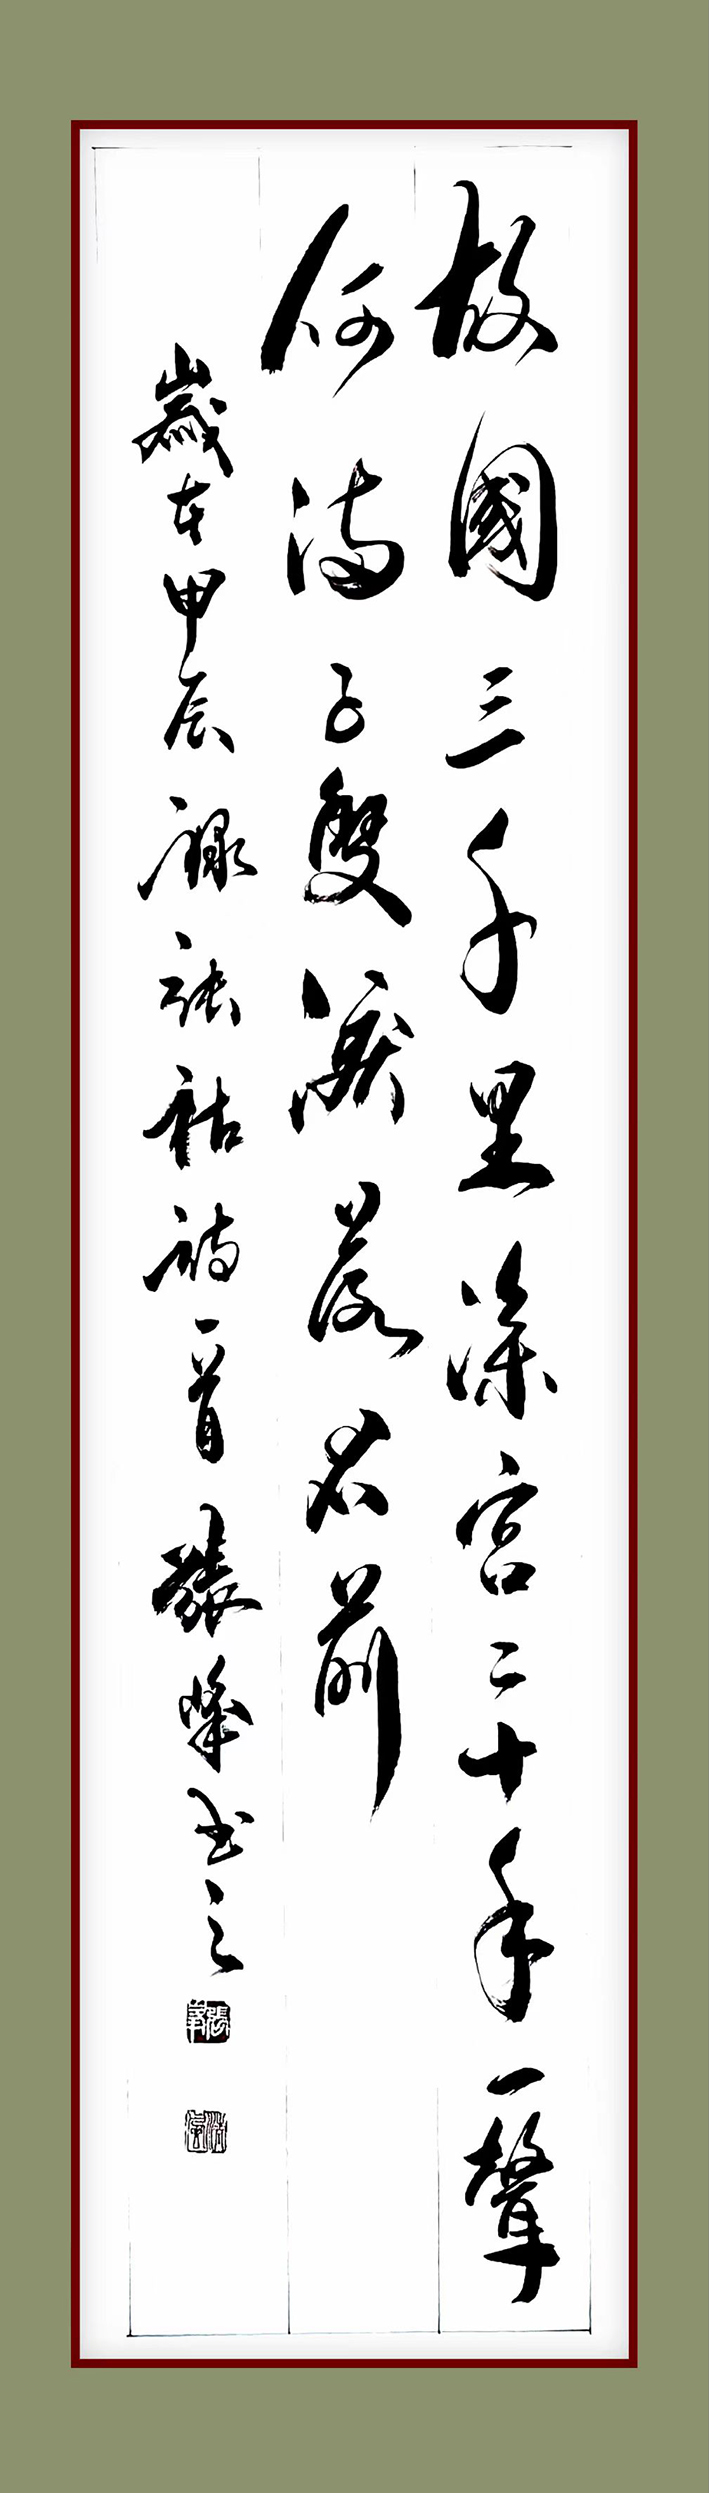 故國三千里深宮二十年一聲
何滿子雙淚落君前
歲在甲辰祜詩一首書之